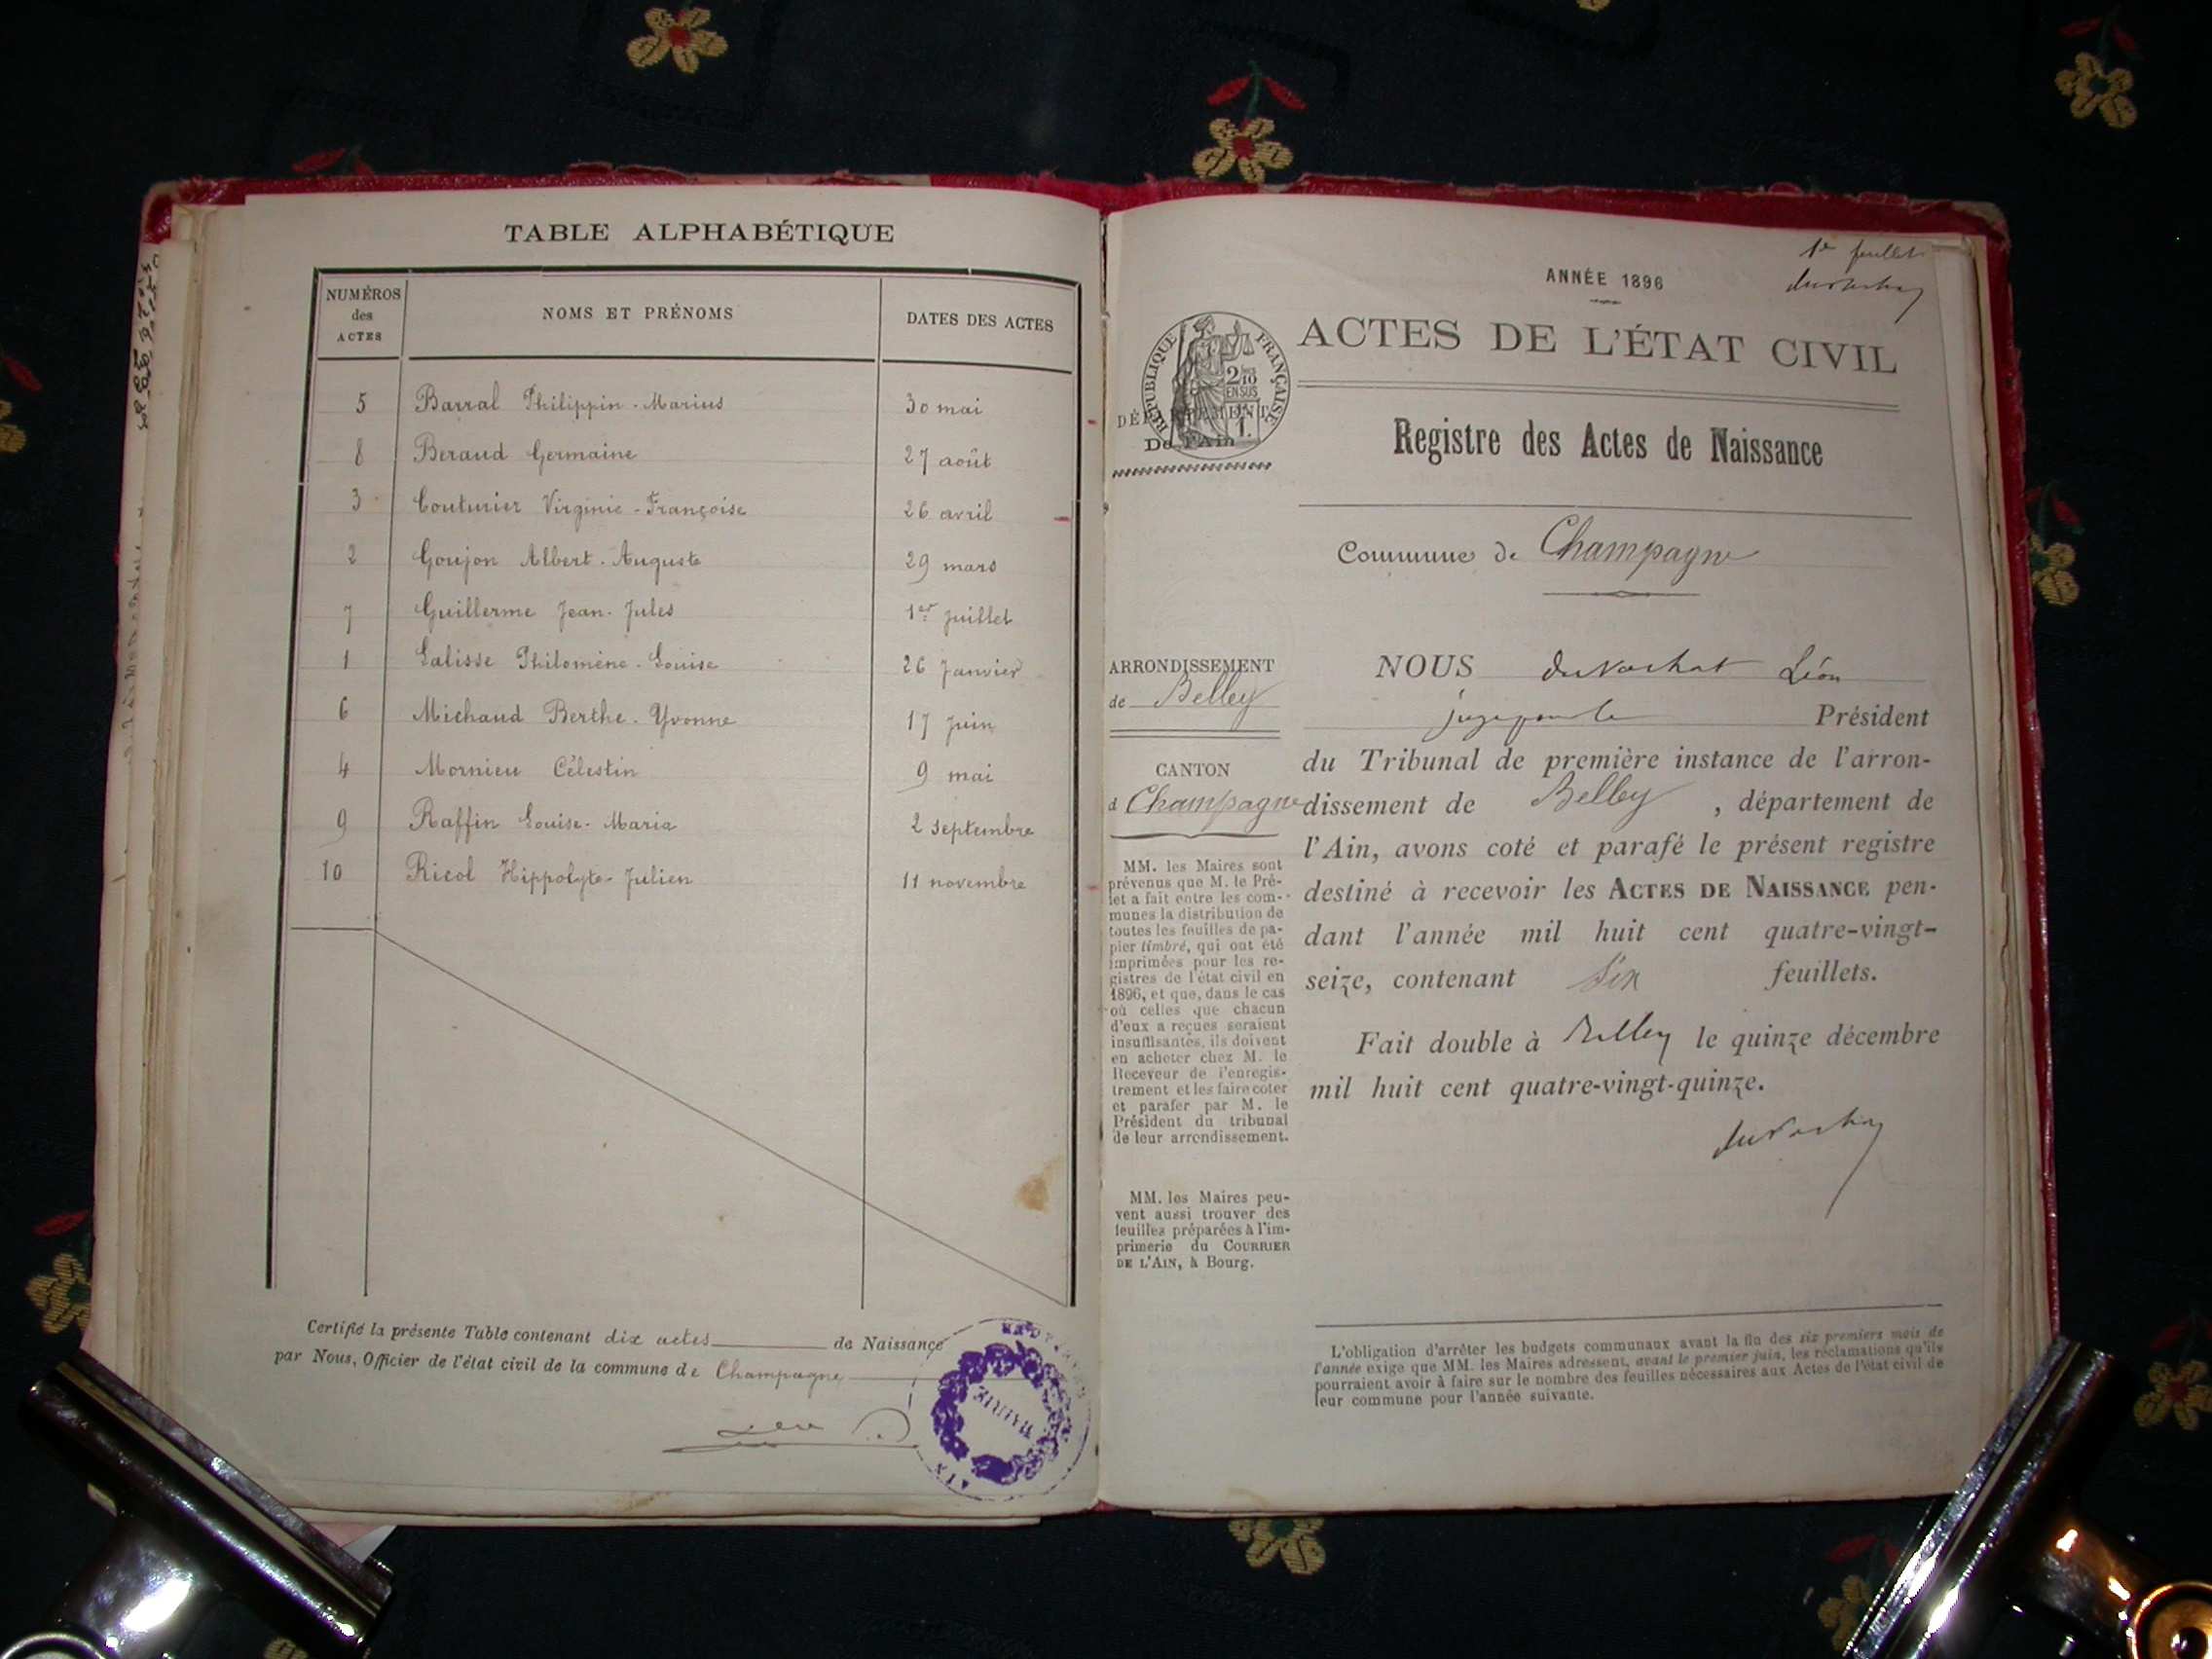 TABLE ALPHABÉTIQUE
NUMÉROS
des
ACTES
NOMS ET PRÉNOMS
DATES DES ACTES
5 Barral Philippin-Marius 30 mai
8 Beraud Germaine 27 août
3 Couturier Virginie-Françoise 26 avril
2 Goujon Albert-Auguste 29 mars
7 Guillerme Jean-Jules 1er juillet
1 Lalisse Philomène-Louise 26 Janvier
6 Michaud Berthe-Yvonne 17 juin
4 Mornieu Célestin 9 mai
9 Raffin Louise-Maria 2 septembre
10 Ricol Hippolyte-Julien 11 novembre
Certifié la présente Table contenant dix actes de Naissance
par Nous, Officier de l'état civil de la commune de Champagne
MAIRIE
AIN
1er feuillet
ANNÉE 1896
ACTES DE L'ÉTAT CIVIL
RÉPUBLIQUE FRANÇAISE
2/10
EN SUS
DÉPARTEMENT
De l'Ain
Registre des Actes de Naissance
Commune de Champagne
ARRONDISSEMENT
de Belley
CANTON
d Champagne
MM. les Maires sont
prévenus que M. le Pré-
fet a fait entre les com-
munes la distribution de
toutes les feuilles de pa-
pier timbré, qui ont été
imprimées pour les re-
gistres de l'état civil en
1896, et que, dans le cas
où celles que chacun
d'eux a reçues seraient
insuffisantes, ils doivent
en acheter chez M. le
Receveur de l'enregis-
trement et les faire coter
et parafer par M. le
Président du tribunal
de leur arrondissement.
MM. les Maires peu-
vent aussi trouver des
feuilles préparées à l'im-
primerie du COURRIER
DE L'AIN, à Bourg.
NOUS Léon
Président
du Tribunal de première instance de l'arron-
dissement de Belley, département de
l'Ain, avons coté et parafé le présent registre
destiné à recevoir les ACTES DE NAISSANCE pen-
dant l'année mil huit cent quatre-vingt-
seize, contenant six feuillets.
Fait double à Belley le quinze décembre
mil huit cent quatre-vingt-quinze.
L'obligation d'arrêter les budgets communaux avant la fin des six premiers mois de
l'année exige que MM. les Maires adressent, avant le premier juin, les réclamations qu'ils
pourraient avoir à faire sur le nombre des feuilles nécessaires aux Actes de l'état civil de
leur commune pour l'année suivante.